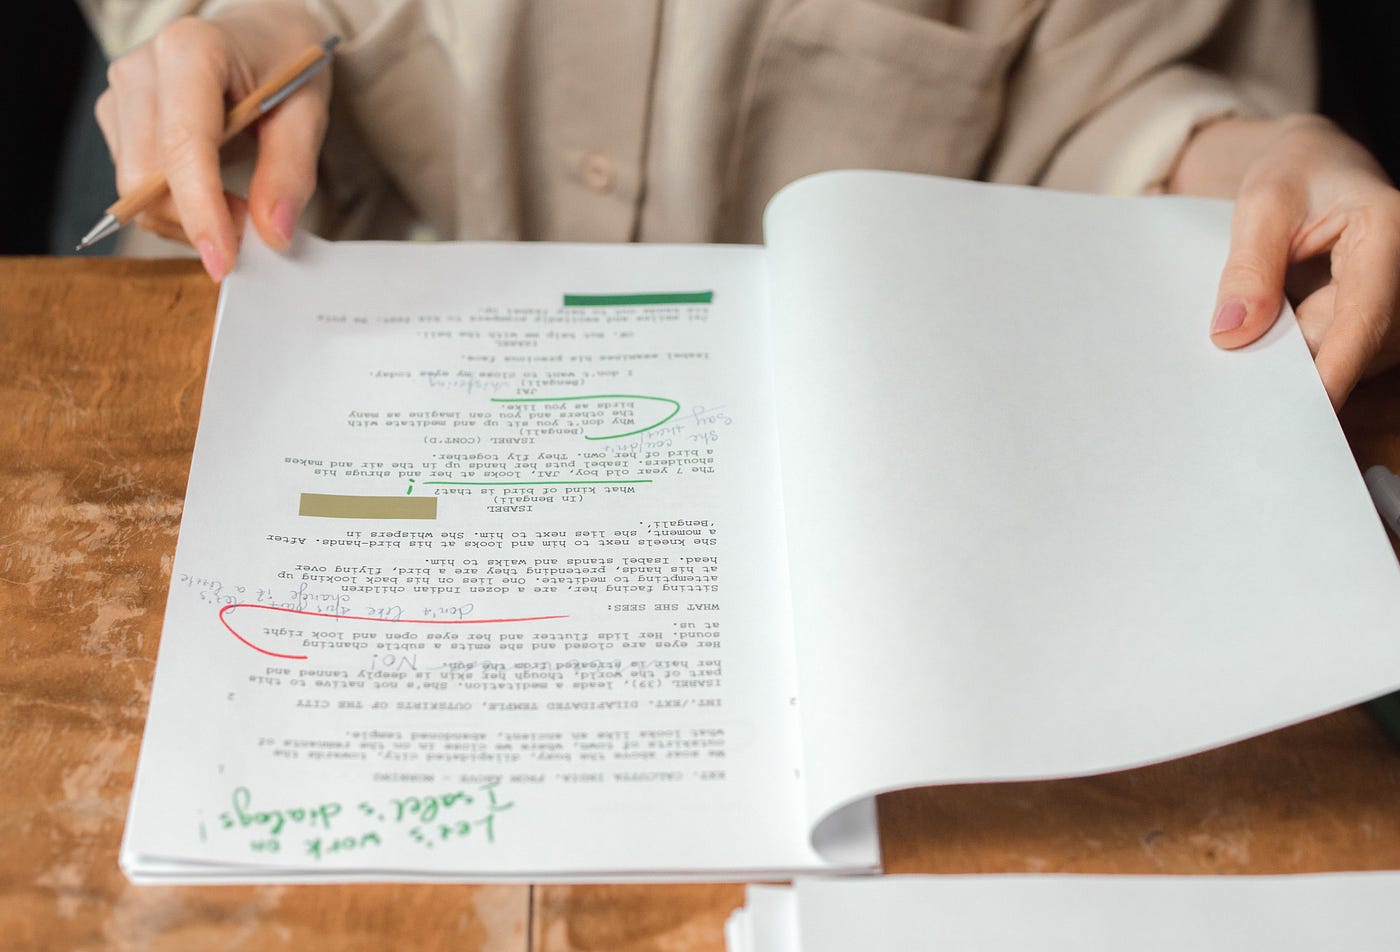 Let's work on
Isabel's dialogs!
1 EXT. CALCUTTA INDIA. FROM ABOVE - MORNING 1
We soar above the busy, dilapidated city, towards the
outskirts of town, where we close in on the remnants of
what looks like an ancient, abandoned temple.
2 INT./EXT. DILAPIDATED TEMPLE, OUTSKIRTS OF THE CITY 2
ISABEL (39), leads a meditation. She's not native to this
part of the world, though her skin is deeply tanned and
her hair is streaked from the sun.
NO!
Her eyes are closed and she emits a subtle chanting
sound. Her lids flutter and her eyes open and look right
at us.
don't like this part let's
change it a little
WHAT SHE SEES:
Sitting facing her, are a dozen Indian children
attempting to meditate. One lies on his back looking up
at his hands, pretending they are a bird, flying over
head. Isabel stands and walks to him.
She kneels next to him and looks at his bird-hands. After
a moment, she lies next to him. She whispers in
'Bengali'.
ISABEL
(In Bengali)
What kind of bird is that?
The 7 year old boy, JAI, looks at her and shrugs his
shoulders. Isabel puts her hands up in the air and makes
a bird of her own. They fly together.
She couldn't
say that
ISABEL (CONT'D)
(Bengali)
Why don't you sit up and meditate with
the others and you can imagine as many
birds as you like.
JAI
(Bengali) whispering
I don't want to close my eyes today.
Isabel examines his precious face.
ISABEL
OK. But help me with the ball.
Jai smiles and excitedly scampers to his feet. He puts
his hands out to help Isabel up.